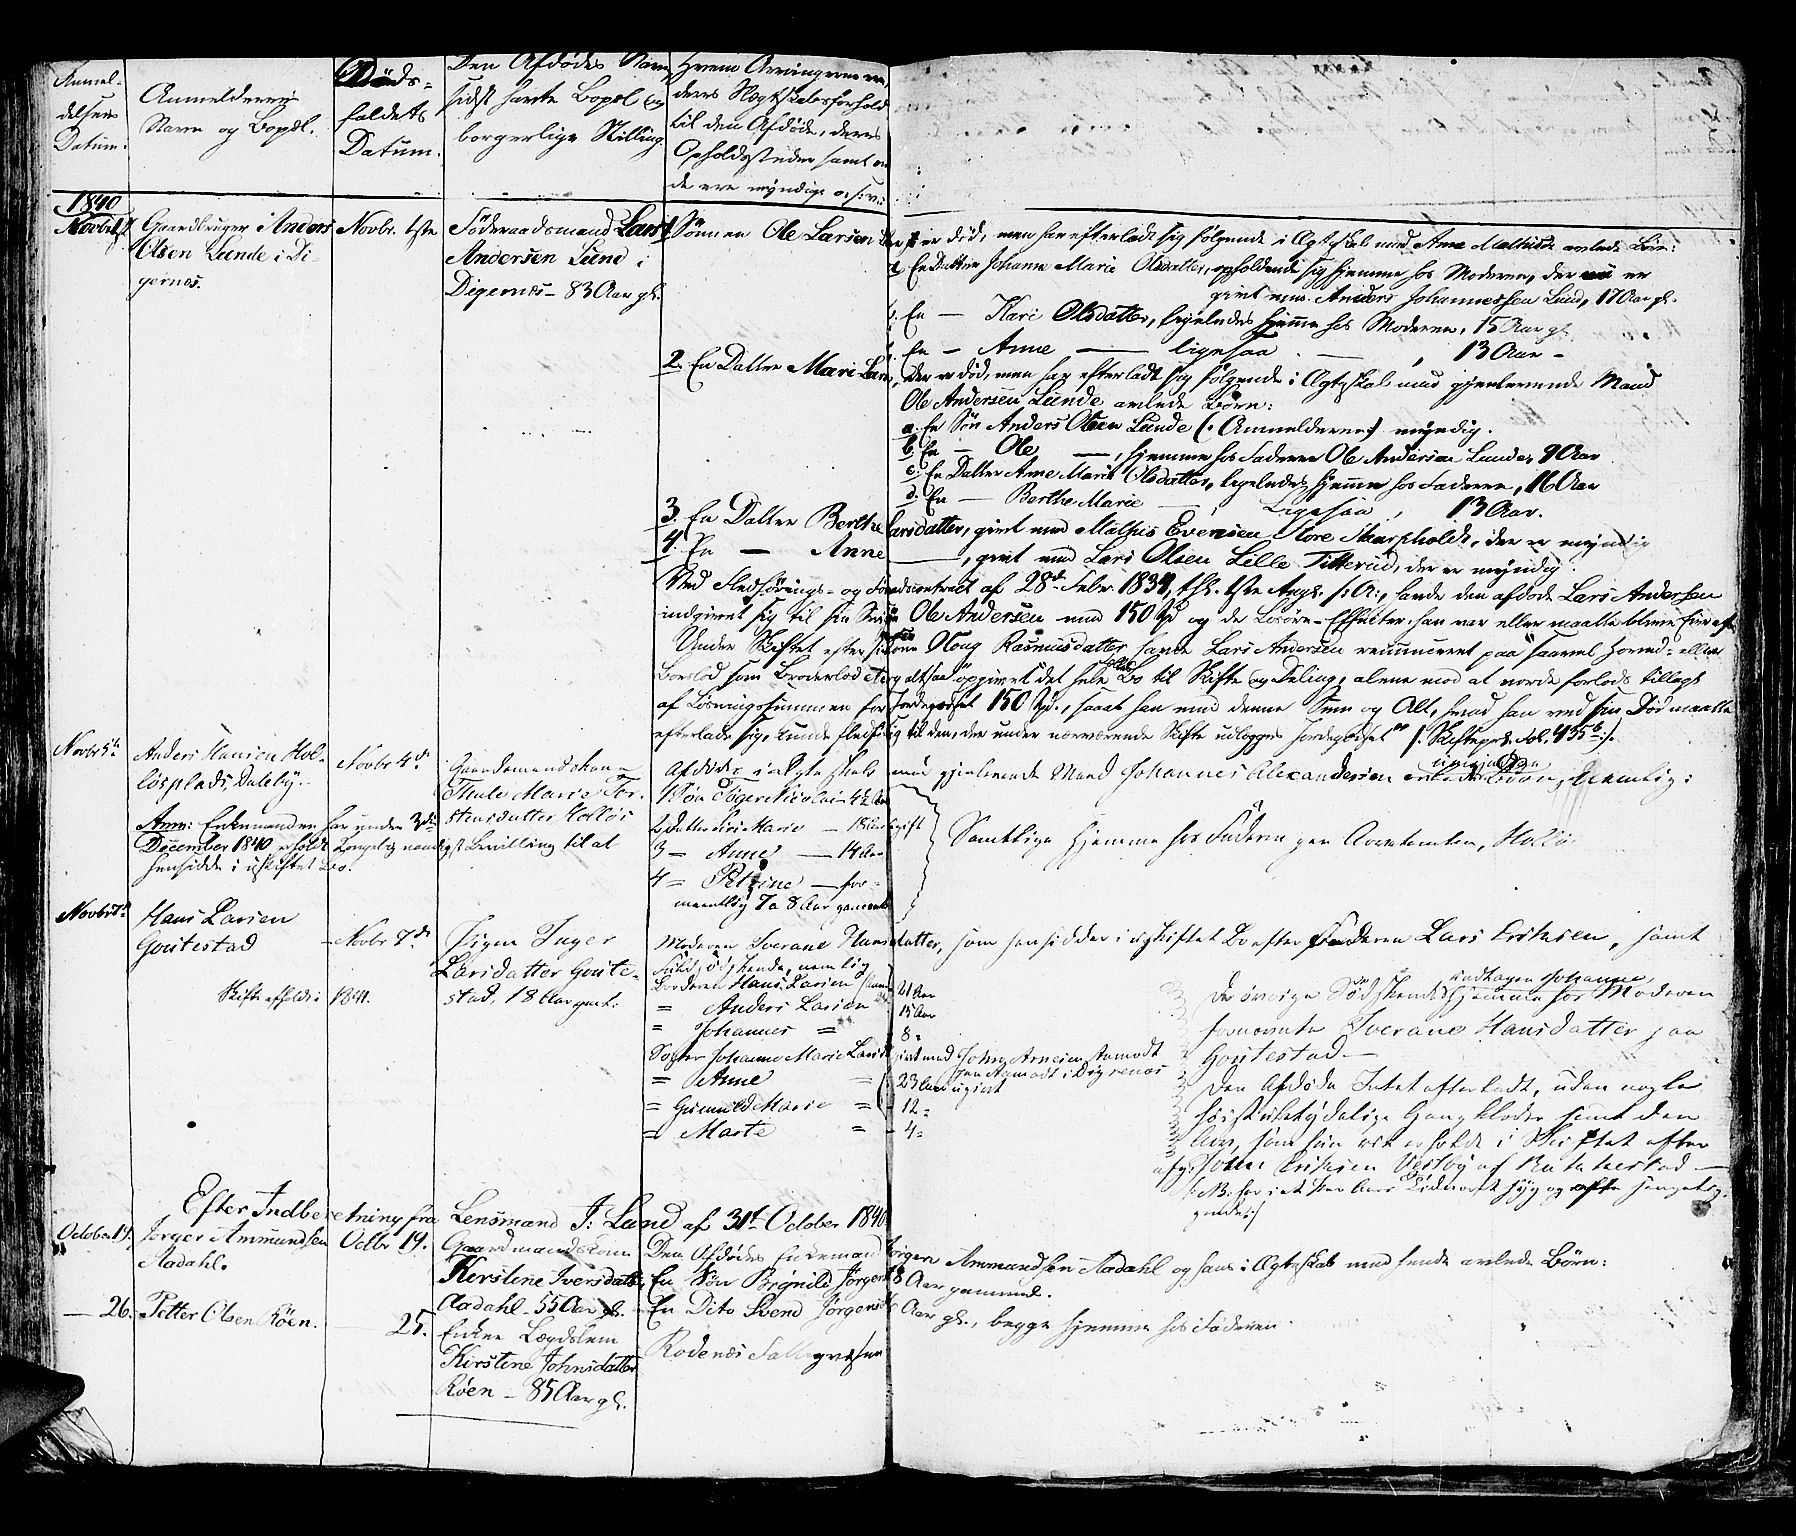 Anmel-
delsens
Datum.
Anmelderens
Navn og Bopæl.
Døds-
faldets
Datum.
Den Afdødes Navn,
sidst havte Bopæl og
borgerlige Stilling.
Hvem Arvingerne ere,
deres Slægtskabsforhold
til den Afdøde, deres
Opholdssteder samt om
de ere myndige o.s.v.
1840
Novbr
Gaardbruger Anders
Olsen Lunde i Di-
gernes.
Novbr. 1ste
Föderaadsmand Lars
Andersen Lund i
Digernes - 83 Aar gl.
1. Sönnen Ole Larsen
er død, men har efterladt sig følgende i Ægteskab med Anne Mathisd. avlede Börn:
a. En Datter Johanne Marie Olsdatter, opholdende sig hjemme hos Moderen, der nu er
givt med Anders Johannessen Lund, 17 Aar gl.
b. En — Kari Olsdatter, ligeledes hjemme hos Moderen, 15 Aar gl.
c. En — Anne — ligesaa — , 13 Aar -
2. En Datter Mari Lars
der er død, men har efterladt sig følgende i Ægteskab med gjenlevende Mand
Ole Andersen Lunde avlede Børn:
a. En Sön Anders Olsen Lunde (: Anmelderen:) myndig.
b. En — Ole — , hjemme hos Faderen Ole Andersen Lunde, 9 Aar
c. En Datter Anne Marie Olsdatter, ligeledes hjemme hos Faderen, 16 Aar
d. En — Berthe Marie — Ligesaa , 13 Aar.
3. En Datter Berthe Larsdatter, givt med Mathis Evensen Store Skarpholdt, der er myndig
4. En — Anne — , givt med Lars Olsen Lille Titterud, der er myndig.
Ved Fledförings- og contract af 28de Febr. 1834, thl. 1ste Aug. s. A., havde den afdøde Lars Andersen
indgivet sig til sin Ole Andersen med 150 Spd og de Lösöre-Effecter, han var eller maatte blive Eier af.
Under Skiftet efter sin Kone Xoug Rasmusdatter havde Lars Andersen renunceret paa saavel Hoved- eller
Boeslod som Broderlod og altsaa opgivet det hele Bo til Skifte og Deling, alene mod at vorde forlods tillagt
af Løsningssummen for Jordegodset 150 Spd., saaat han med denne Sum og Alt, hvad han ved sin Död maatte
efterlade sig, kunde til den, der under nærværende Skifte udlægges Jordegodset" /: Skiftepr. fol. 435b:/.
Novbr 5te
Anders Hansen Hol-
løsplads, Daleby.
Anm: Enkemanden har under 3die
December 1840 erholdt Kongelig naadigst Bevilling til at
hensidde i uskiftet Bo.
Novbr 4de
Gaardmandskone
Thale Marie Tor-
stensdatter Holløs
Afdødes i ægteskab
med gjenlevende Mand Johannes Alexandersen Børn, nemlig:
1 Søn Nicolai 4½ Aar
2 Datter Marie — 18 Aar ugift
3 = Anne — 14 Aar
4 = Petrine — for-
mentlig 7 a 8 Aar gammel
Samtlige hjemme hos Faderen paa Holløs.
Novbr 7de
Hans Larsen
Goutestad
Skifte afholdt i 1841.
Novbr 7de
Pigen Inger
Larsdatter Goute-
stad, 18 Aar gaml.
Moderen Sverane Hansdatter, som hensidder i uskiftet Bo efter Faderen Lars Eriksen, samt
Fuldsødskende, nemlig
Broderen Hans Larsen 21 Aar
= Anders Larsen 15 Aar
= Johannes = 8 =
Søster Johanne Marie Larsdt givt med John Arnesen Aamodt
paa Aamodt i Digrenæs
= Anne = 23 Aar ugivt
= Gunnild Marie = 12 =
= Marte = 4 =
De øvrige Sødskende undtagen Johanne,
hjemme hos Moderen
fornævnte Sverane Hansdatter paa
Goutestad —
Den Afdøde Intet efterladt, uden nogle
høist ubetydelige Gangklæder samt den
Arv, som hun vil erholde i Skiftet efter
afg. John Eriksen Vestby af —
Efter Indberetning fra Lensmand J. Lund af 31te October 1840
October 19.
Jörger Ammundsen
Aadahl.
Octbr 19.
Gaardmandskone
Kerstine Iversdatter
Aadahl - 55 Aar gl.
Den Afdødes Enkemand Jörgen Ammundsen Aadahl og hans i Ægteskab med hende avlede Börn:
En Sön Brynild Jörgens 8 Aar gammel.
En Dito Svend Jörgens Aar gl., begge hjemme hos Faderen.
— 26.
Petter Olsen Röen.
— 25.
Enken Lægdslem
Kirstine Johnsdatter
Röen - 85 Aar gl.
Rodenæs Fattigvæsen